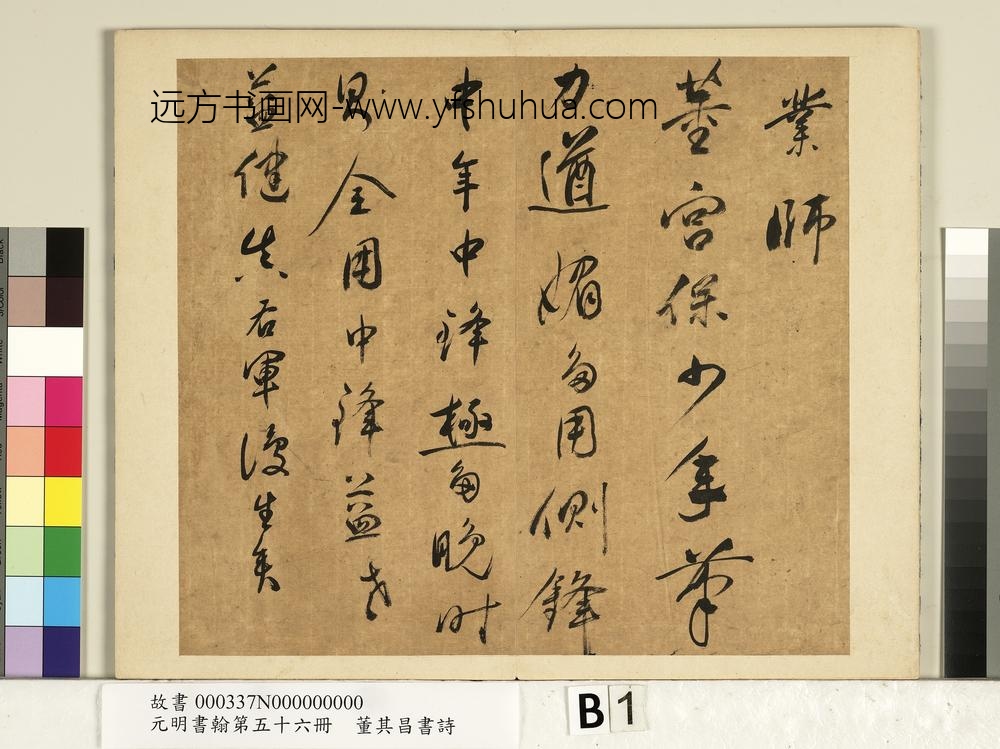 業師
董宮保少年筆
力遒媚多用側鋒
中年中鋒極多晚時
最全用中鋒益老
益健真右軍後生矣
远方书画网-www.yfshuhua.com
故書 000337N000000000
元明書翰第五十六冊 董其昌書詩
B 1